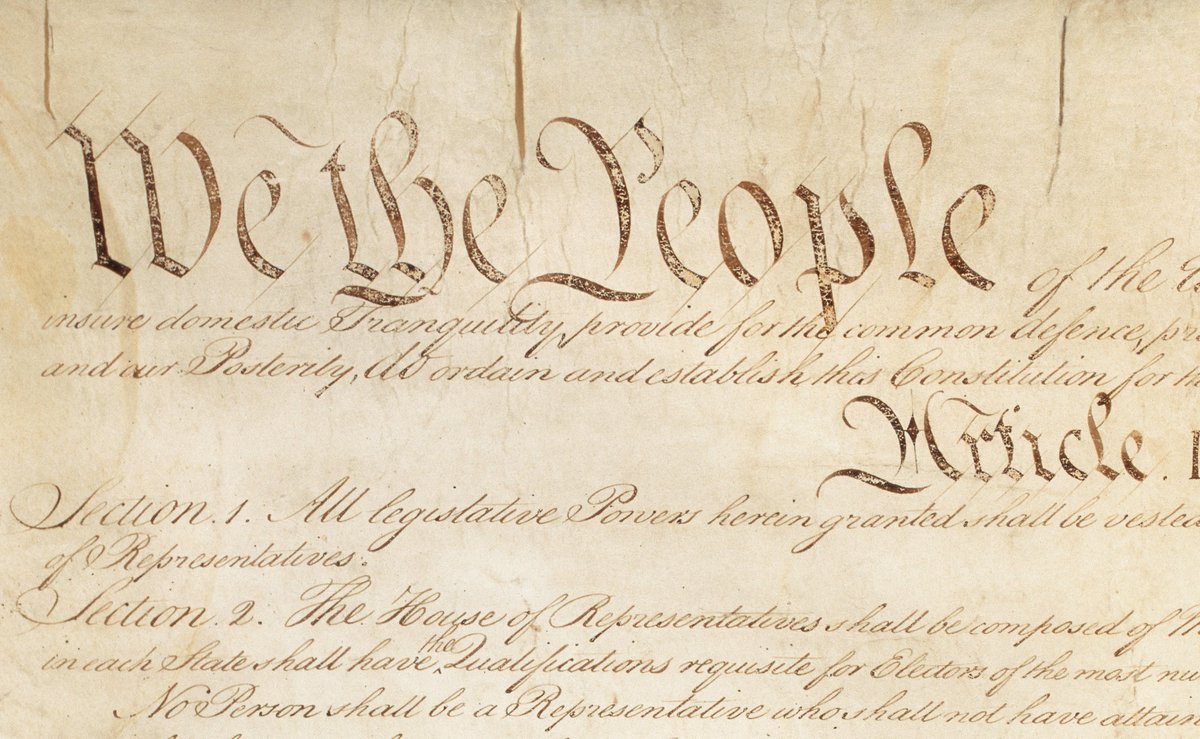 We the People of the
insure domestic Tranquility, provide for the common defence,
and our Posterity, do ordain and establish this Constitution for
Article.
Section. 1. All legislative Powers herein granted shall be
of Representatives.
Section. 2. The House of Representatives shall be composed of
the
in each State shall have Qualifications requisite for Electors of the most
No Person shall be a Representative who shall not have